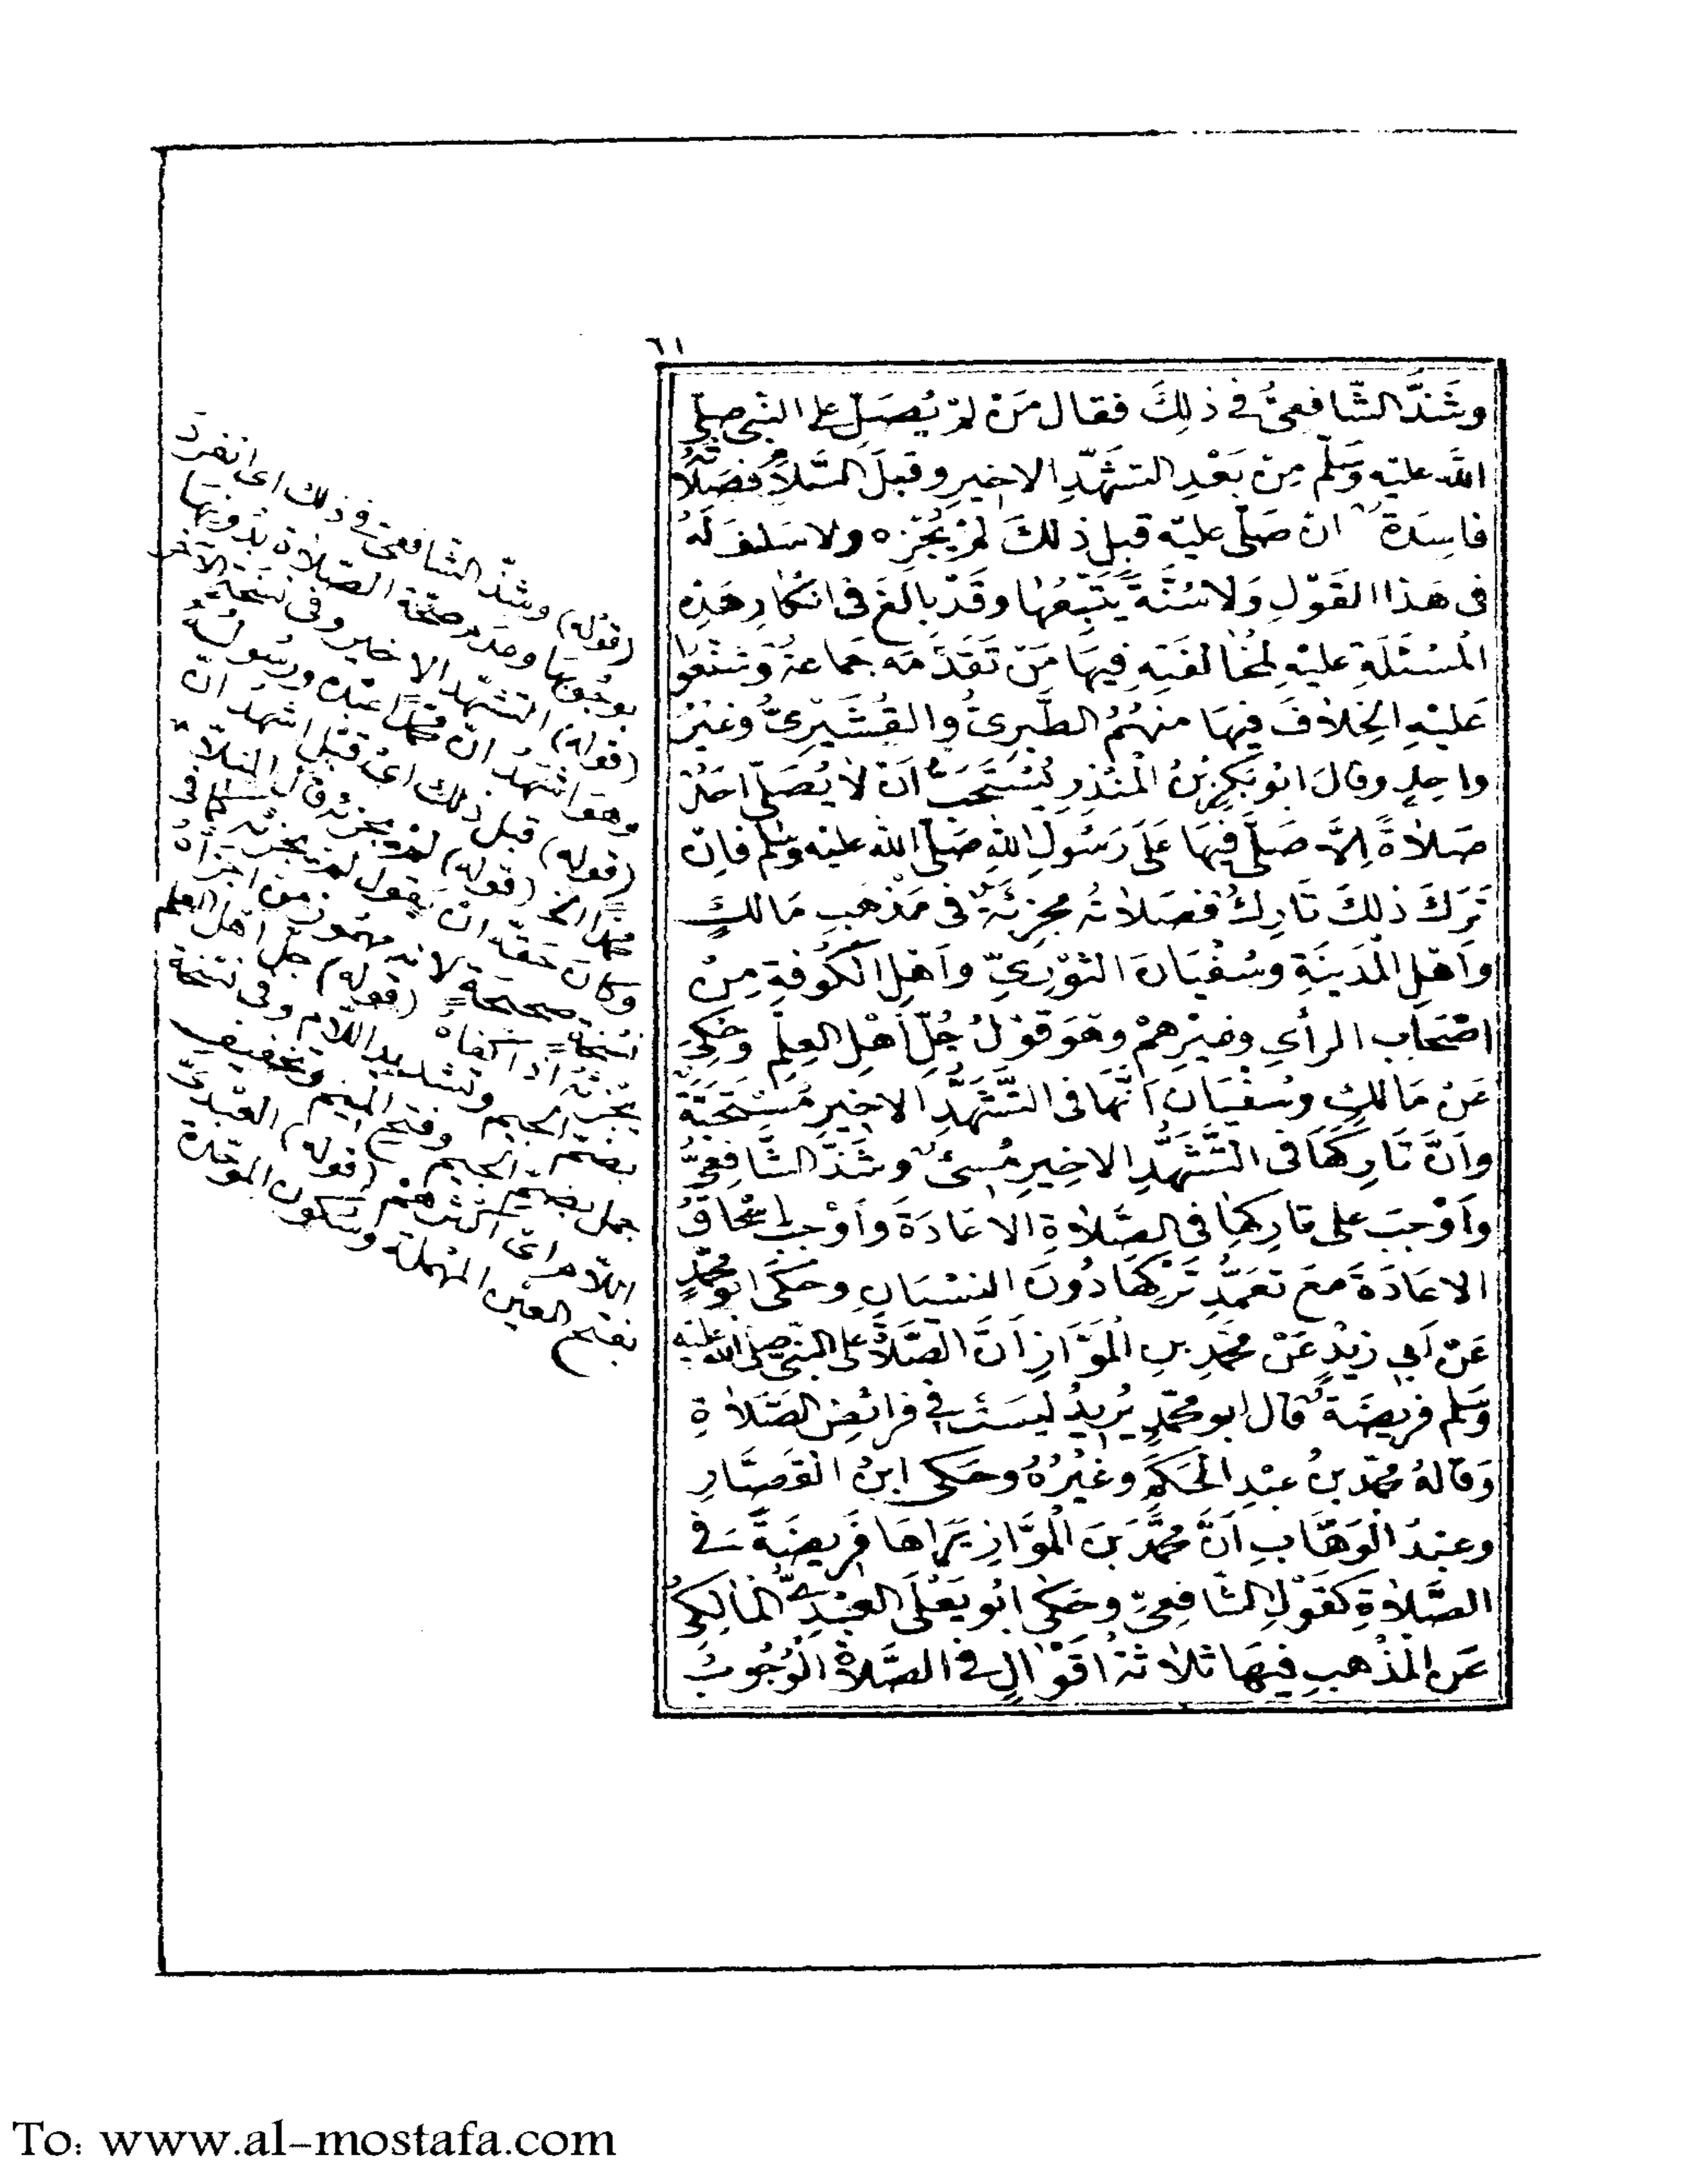 ٦١
وَشَذَّ الشَّافِعِيُّ فِي ذٰلِكَ فقال مَنْ لَمْ يُصَلِّ عَلَى النَّبِيِّ صلى
اللّٰه عليه وَسَلَّم مِنْ بَعْدِ التشَهُّدِ الاخيرِ وقبلَ السَّلَامِ فَصَلَاتُهُ
فاسِدَةٌ وان صَلَّى عليْه قبل ذٰلكَ لَمْ يُجْزِه ولا سَلَفَ لَهُ
فى هَذا القَوْلِ وَلَا سُنَّةً يَتَّبِعُهَا وقَدْ بالَغَ فى انكارِ هَذِهِ
المَسْئَلَةِ عليْهِ لِمُخَالَفَتِهِ فِيهَا مَنْ تَقَدَّمَه جَمَاعةٌ وَشَنَّعُوا
عَلَيْهِ الخِلَافَ فِيهَا مِنْهُمُ الطَّبَرِىُّ وَالقُشَيْرِىُّ وغَيْرُ
واحِدٍ وقالَ ابُو بَكْرِ بْنُ المُنْذِرِ يُسْتَحَبُّ اَنْ لَا يُصَلِّىَ اَحَدٌ
صَلَاةً اِلَّا صَلَّى فِيهَا عَلَى رَسُولِ اللّٰهِ صَلَّى اللّٰه عليْه وسَلَّم فَاِنْ
تَرَكَ ذٰلِكَ تَارِكٌ فَصَلَاتُه مُجْزِئَةٌ فى مَذْهَبِ مَالِكٍ
وَاَهْلِ المَدِينَةِ وسُفْيَانَ الثَّوْرِىِّ وَاَهْلِ الكُوفَةِ مِنْ
اَصْحَابِ الرَّأْىِ وغَيْرِهِمْ وهُوَ قَوْلُ جُلِّ اَهْلِ العِلْمِ وحُكِىَ
عَنْ مَالِكٍ وسُفْيَانَ اَنَّهَا فى التَّشَهُّدِ الاخِيرِ مُسْتَحَبَّةٌ
وَاَنَّ تَارِكَهَا فى التَّشَهُّدِ الاخِيرِ مُسِئٌ وشَذَّ الشَّافِعِىُّ
وَاَوْجَبَ على تارِكِهَا فى الصَّلَاةِ الاعَادَةَ وَاَوْجَبَ اِسْحَاقُ
الاعَادَةَ مَعَ تَعَمُّدِ تَرْكِهَا دُونَ النِّسْيَانِ وحَكَى ابُو مُحَمَّدٍ
عَنْ اَبِى زَيْدٍ عَنْ مُحَمَّدِ بنِ المَوَّازِ اَنَّ الصَّلَاةَ عَلَى النَّبِىِّ صلى اللّٰه عليه
وسَلَّم فرِيضَةٌ قال ابو محمّدٍ يُرِيدُ ليسَتْ فى فرائضِ الصَّلَاةِ
وَقالَهُ محمّدُ بنُ عبْدِ الحَكَمِ وغَيْرُهُ وحَكى ابنُ القَصَّارِ
وعبْدُ الوَهَّابِ اَنَّ محمَّدَ بنَ المَوَّازِ يَرَاهَا فَرِيضَةً فى
الصَّلَاةِ كَقَوْلِ الشَّافِعِىِّ وحَكى ابُو يَعْلَى العَبْدِىُّ المَالِكِىُّ
عَنِ المَذْهَبِ فِيهَا ثَلَاثَةَ اَقْوَالٍ فى الصَّلَاةِ الوُجُوبُ
(قوله) وشذّ الشافعى فى ذلك اى انفرد
بوجوبها وعدم صحّة الصلاة بدونها
(قوله) التشهّد الاخير وفى نسخة الآخر
وهو اشهد انّ محمّدا عبده ورسوله
(قوله) قبل ذلك اى قبل اشهد انّ
محمّدا الخ (قوله) لم يجزئه
وكان حقّه ان يقول لم يجزئه كما فى
نسخة صحيحة لانه مهموز من اجزأه
يجزئه اذا كفاه (قوله) جلّ اهل العلم
بضمّ الجيم وتشديد اللام وفى نسخة
جمل بضمّ الجيم وفتح الميم وتخفيف
اللام اى اكثرهم (قوله) العبدىّ
بفتح العين المهملة وسكون الموحّدة
To: www.al-mostafa.com